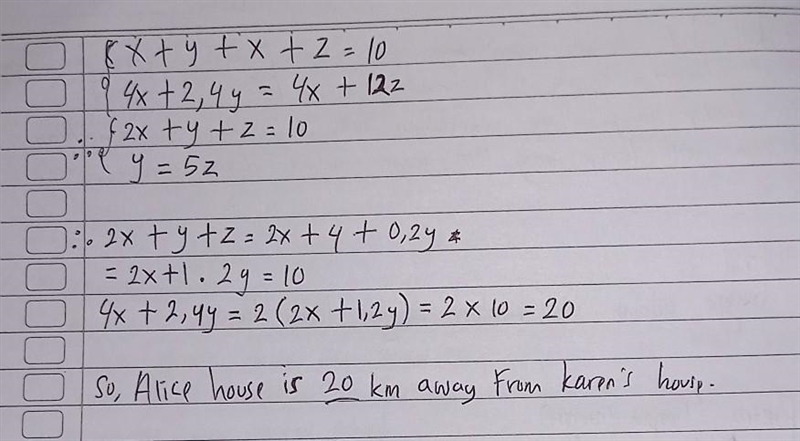 { x + y + x + z = 10
{ 4x + 2,4y = 4x + 12z
∴ { 2x + y + z = 10
{ y = 5z
∴ 2x + y + z = 2x + y + 0,2y
= 2x + 1 . 2y = 10
4x + 2,4y = 2 (2x + 1,2y) = 2 x 10 = 20
So, Alice house is 20 km away From karen's house.